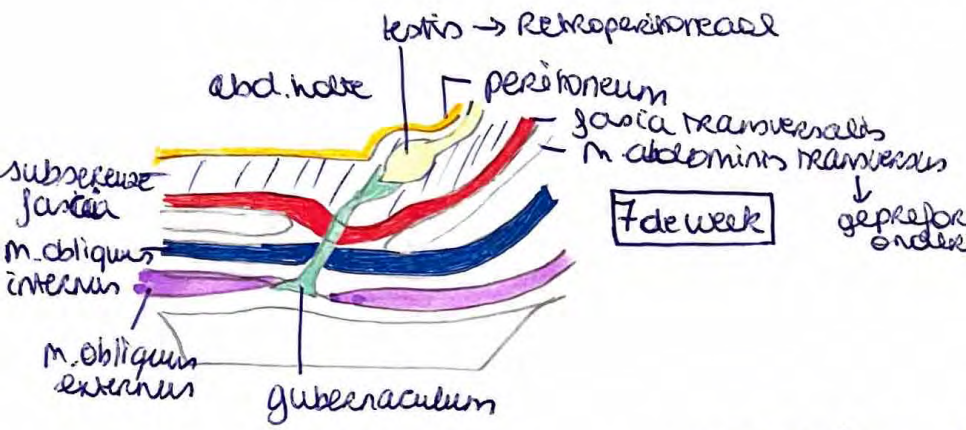 testis → Retroperitoneaal
abd. holte
peritoneum
fascia transversalis
m. abdominis transversus
↓
geprefor
onder
subsereuze
fascia
7de week
m. obliquus
internus
m. obliquus
externus
gubernaculum